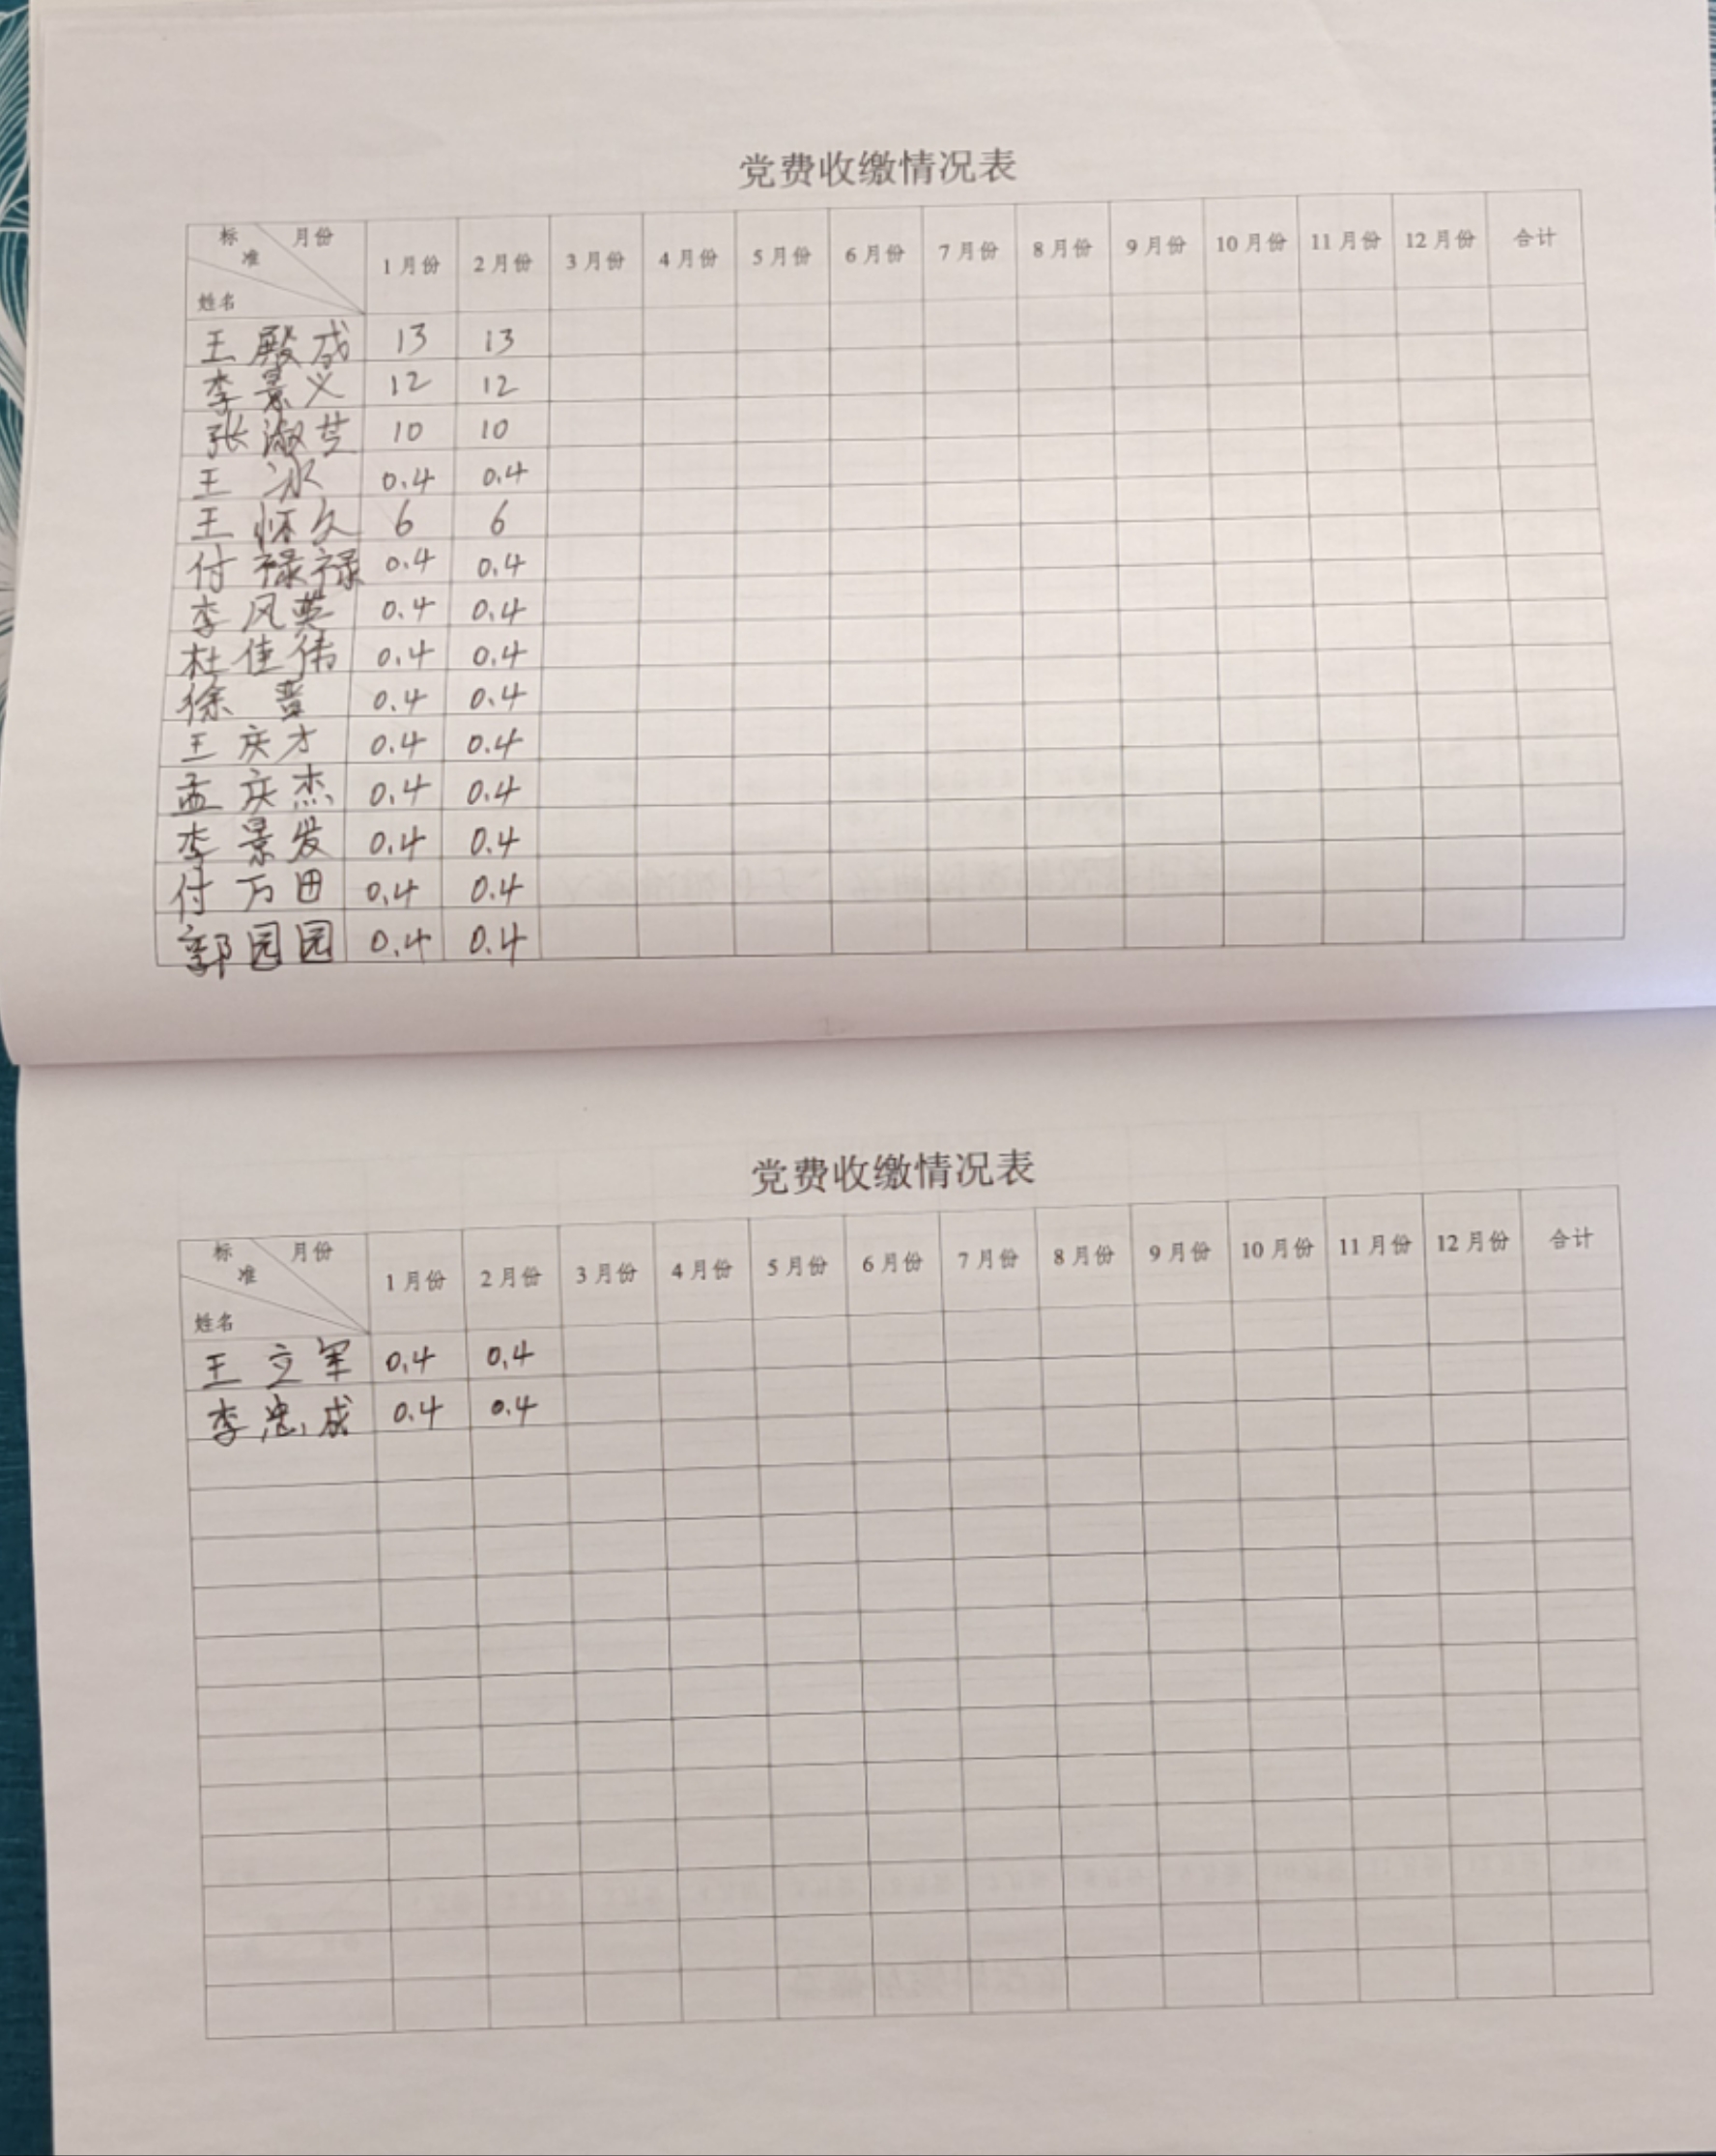 党费收缴情况表
标准 月份 姓名 1月份 2月份 3月份 4月份 5月份 6月份 7月份 8月份 9月份 10月份 11月份 12月份 合计
王殿成 13 13
李景义 12 12
张淑芝 10 10
王冰 0.4 0.4
王怀久 6 6
付禄禄 0.4 0.4
李风英 0.4 0.4
杜佳伟 0.4 0.4
徐晋 0.4 0.4
王庆才 0.4 0.4
孟庆杰 0.4 0.4
李景发 0.4 0.4
付万田 0.4 0.4
郭园园 0.4 0.4
党费收缴情况表
标准 月份 姓名 1月份 2月份 3月份 4月份 5月份 6月份 7月份 8月份 9月份 10月份 11月份 12月份 合计
王立军 0.4 0.4
李忠成 0.4 0.4